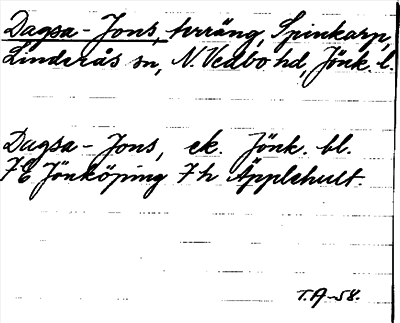 Dagsa-Jons, tvräng, Spinkarp,
Linderås sn, N. Vedbo hd, Jönk. l.
Dagsa-Jons, ek. Jönk. bl.
7E Jönköping 7h Äpplehult.
T.A-58.